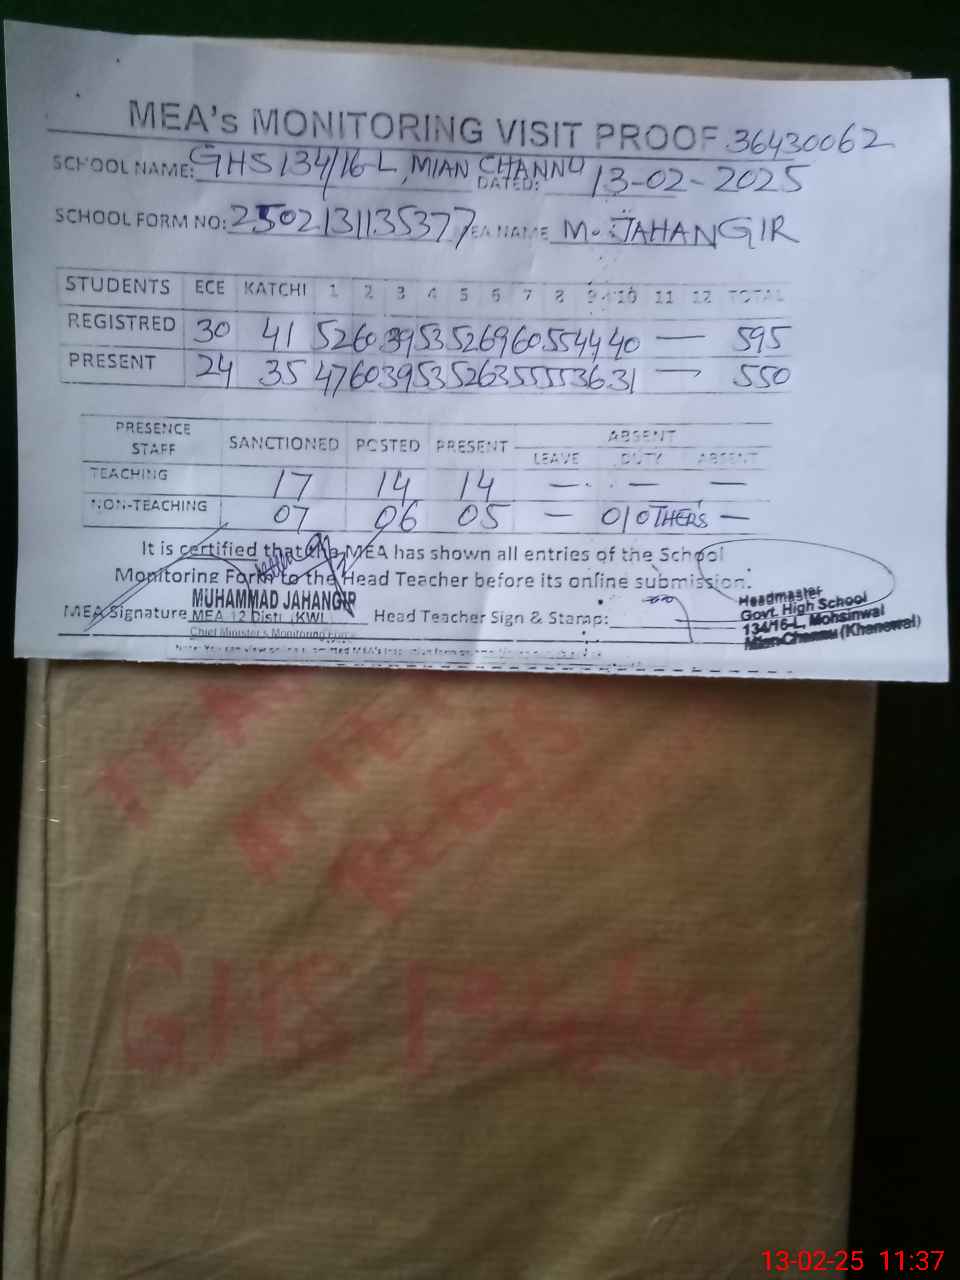 MEA's MONITORING VISIT PROOF 36430062
SCHOOL NAME: GHS 134/16-L, MIAN CHANNU DATED: 13-02-2025
SCHOOL FORM NO: 2502131135377 MEA NAME M. JAHANGIR
STUDENTS ECE KATCHI 1 2 3 4 5 6 7 8 9 10 11 12 TOTAL
REGISTRED 30 41 52 60 39 53 52 69 60 55 44 40 — 595
PRESENT 24 35 47 60 39 53 52 63 55 55 36 31 — 550
PRESENCE STAFF SANCTIONED POSTED PRESENT ABSENT
LEAVE DUTY ABSENT
TEACHING 17 14 14 — — —
NON-TEACHING 07 06 05 — 01 OTHERS —
It is certified that the MEA has shown all entries of the School
Monitoring Form to the Head Teacher before its online submission.
MUHAMMAD JAHANGIR
MEA Signature MEA 12 Distt (KWL Head Teacher Sign & Stamp:
Chief Minister's Monitoring Force
Headmaster
Govt. High School
134/16-L, Mohsinwal
Mian Channu (Khanewal)
GHS 134/16L
13-02-25 11:37